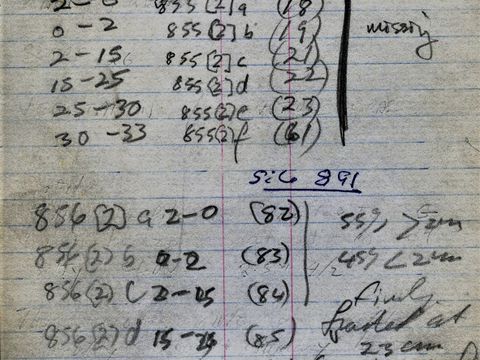 2-0 855[2]a (18)
0-2 855[2]b (19) missing
2-15 855[2]c (21)
15-25 855[2]d (22)
25-30 855[2]e (23)
30-33 855[2]f (61)
856[2] a 2-0 (82) 55% >2mm
856[2] b 0-2 (83) 45% <2mm
856[2] c 2-15 (84) finely
856[2] d 15-23 (85) at
23 cm